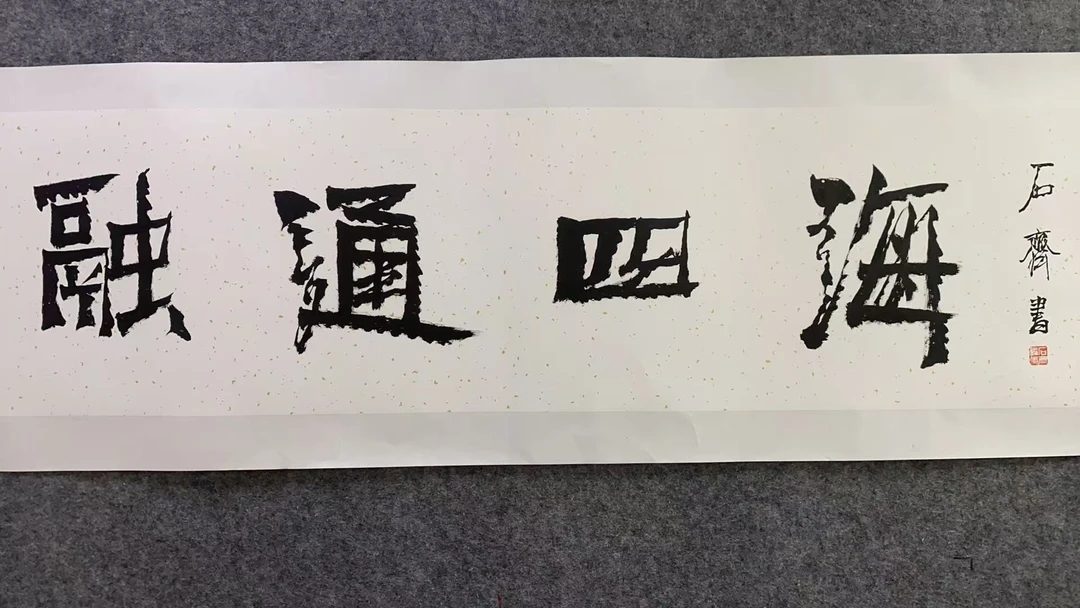 融通四海
石齊書